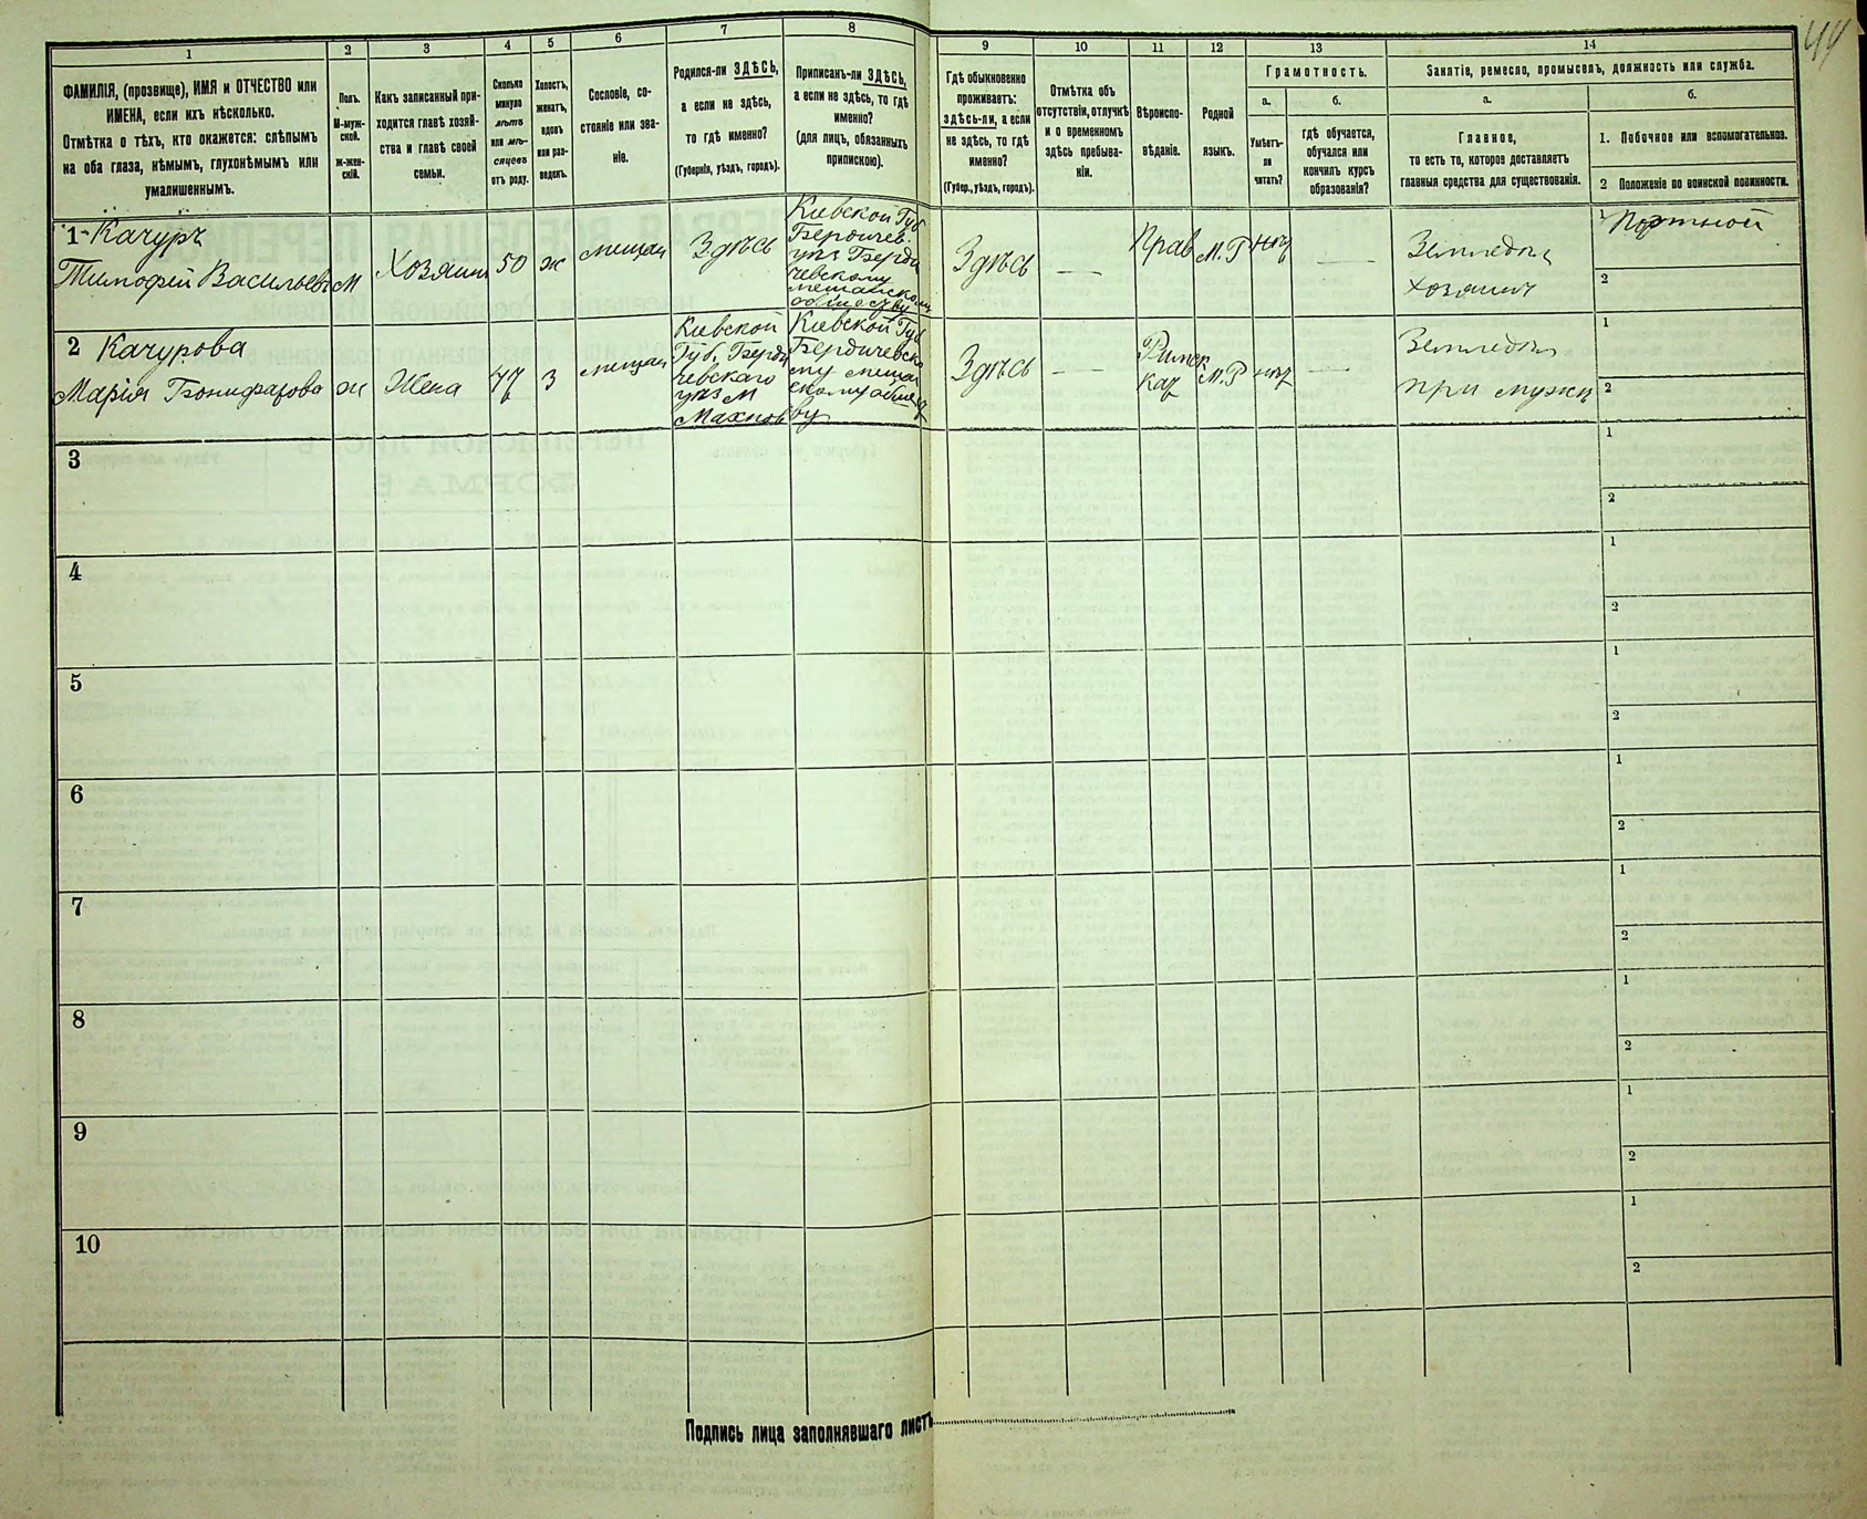 44
1
2
3
4
5
6
7
8
9
10
11
12
13
14
ФАМИЛІЯ, (прозвище), ИМЯ и ОТЧЕСТВО или
ИМЕНА, если ихъ нѣсколько.
Отмѣтка о тѣхъ, кто окажется: слѣпымъ
на оба глаза, нѣмымъ, глухонѣмымъ или
умалишеннымъ.
Полъ.
М-муж-
ской.
Ж-жен-
скій.
Какъ записанный при-
ходится главѣ хозяй-
ства и главѣ своей
семьи.
Сколько
минуло
лѣтъ
или мѣ-
сяцевъ
отъ роду.
Холостъ,
женатъ,
вдовъ
или раз-
веденъ.
Сословіе, со-
стояніе или зва-
ніе.
Родился-ли ЗДѢСЬ,
а если не здѣсь,
то гдѣ именно?
(Губернія, уѣздъ, городъ).
Приписанъ-ли ЗДѢСЬ,
а если не здѣсь, то гдѣ
именно?
(для лицъ, обязанныхъ
припискою).
Гдѣ обыкновенно
проживаетъ:
здѣсь-ли, а если
не здѣсь, то гдѣ
именно?
(Губер., уѣздъ, городъ).
Отмѣтка объ
отсутствіи, отлучкѣ
и о временномъ
здѣсь пребыва-
ніи.
Вѣроиспо-
вѣданіе.
Родной
языкъ.
Грамотность.
а.
Умѣетъ-
ли
читать?
б.
гдѣ обучается,
обучался или
кончилъ курсъ
образованія?
Занятіе, ремесло, промыселъ, должность или служба.
а.
Главное,
то есть то, которое доставляетъ
главныя средства для существованія.
б.
1. Побочное или вспомогательное.
2 Положеніе по воинской повинности.
1 Качуръ
Тимофей Васильевъ
м
Хозяинъ
50
ж
мещан
Здѣсь
Кіевской Губ
Бердичев.
уѣз Берди
чевскому
мещанском
обществу
Здѣсь
—
Прав
М.Р
нѣт
—
Земледел
хозяинъ
1 Портной
2
2 Качурова
Марія Бонифарова
ж
Жена
47
З
мещан
Кіевской
Губ, Берди
чевскаго
уѣз м
Махнов
Кіевской Губ
Бердичевско
му мещан
скому общест
ву
Здѣсь
—
Римск
кат
М.Р
нѣт
—
Земледел
при мужѣ
1
2
3
1
2
4
1
2
5
1
2
6
1
2
7
1
2
8
1
2
9
1
2
10
1
2
Подпись лица заполнявшаго листъ